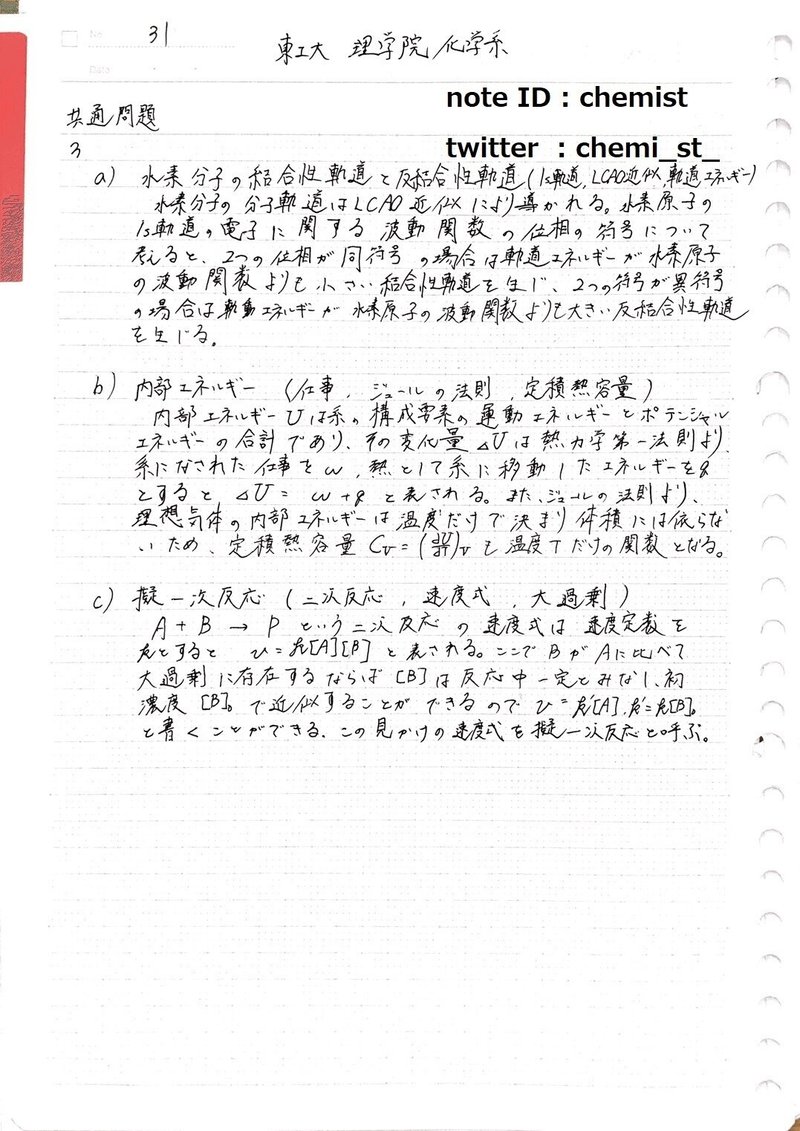 No. 31
東工大 理学院/化学系
Date
note ID : chemist
共通問題
twitter : chemi_st_
3
a) 水素分子の結合性軌道と反結合性軌道(1s軌道,LCAO近似,軌道エネルギー)
水素分子の分子軌道はLCAO近似により導かれる。水素原子の
1s軌道の電子に関する波動関数の位相の符号について
考えると、2つの位相が同符号の場合は軌道エネルギーが水素原子
の波動関数よりも小さい結合性軌道を生じ、2つの符号が異符号
の場合は軌動エネルギーが水素原子の波動関数よりも大きい反結合性軌道
を生じる。
b) 内部エネルギー (仕事,ジュールの法則,定積熱容量)
内部エネルギーUは系の構成要素の運動エネルギーとポテンシャル
エネルギーの合計であり、その変化量ΔUは熱力学第一法則より、
系になされた仕事をw,熱として系に移動したエネルギーをq
とすると ΔU = w+q と表される。また、ジュールの法則より、
理想気体の内部エネルギーは温度だけで決まり体積には依らな
いため、定積熱容量 Cv=(∂U/∂T)v も温度Tだけの関数となる。
c) 擬一次反応 (二次反応,速度式,大過剰)
A + B → P という二次反応の速度式は速度定数を
kとすると v=k[A][B] と表される。ここでBがAに比べて
大過剰に存在するならば[B]は反応中一定とみなし、初
濃度 [B]₀で近似することができるので v=k'[A],k'=k[B]₀
と書くことができる、この見かけの速度式を擬一次反応と呼ぶ。